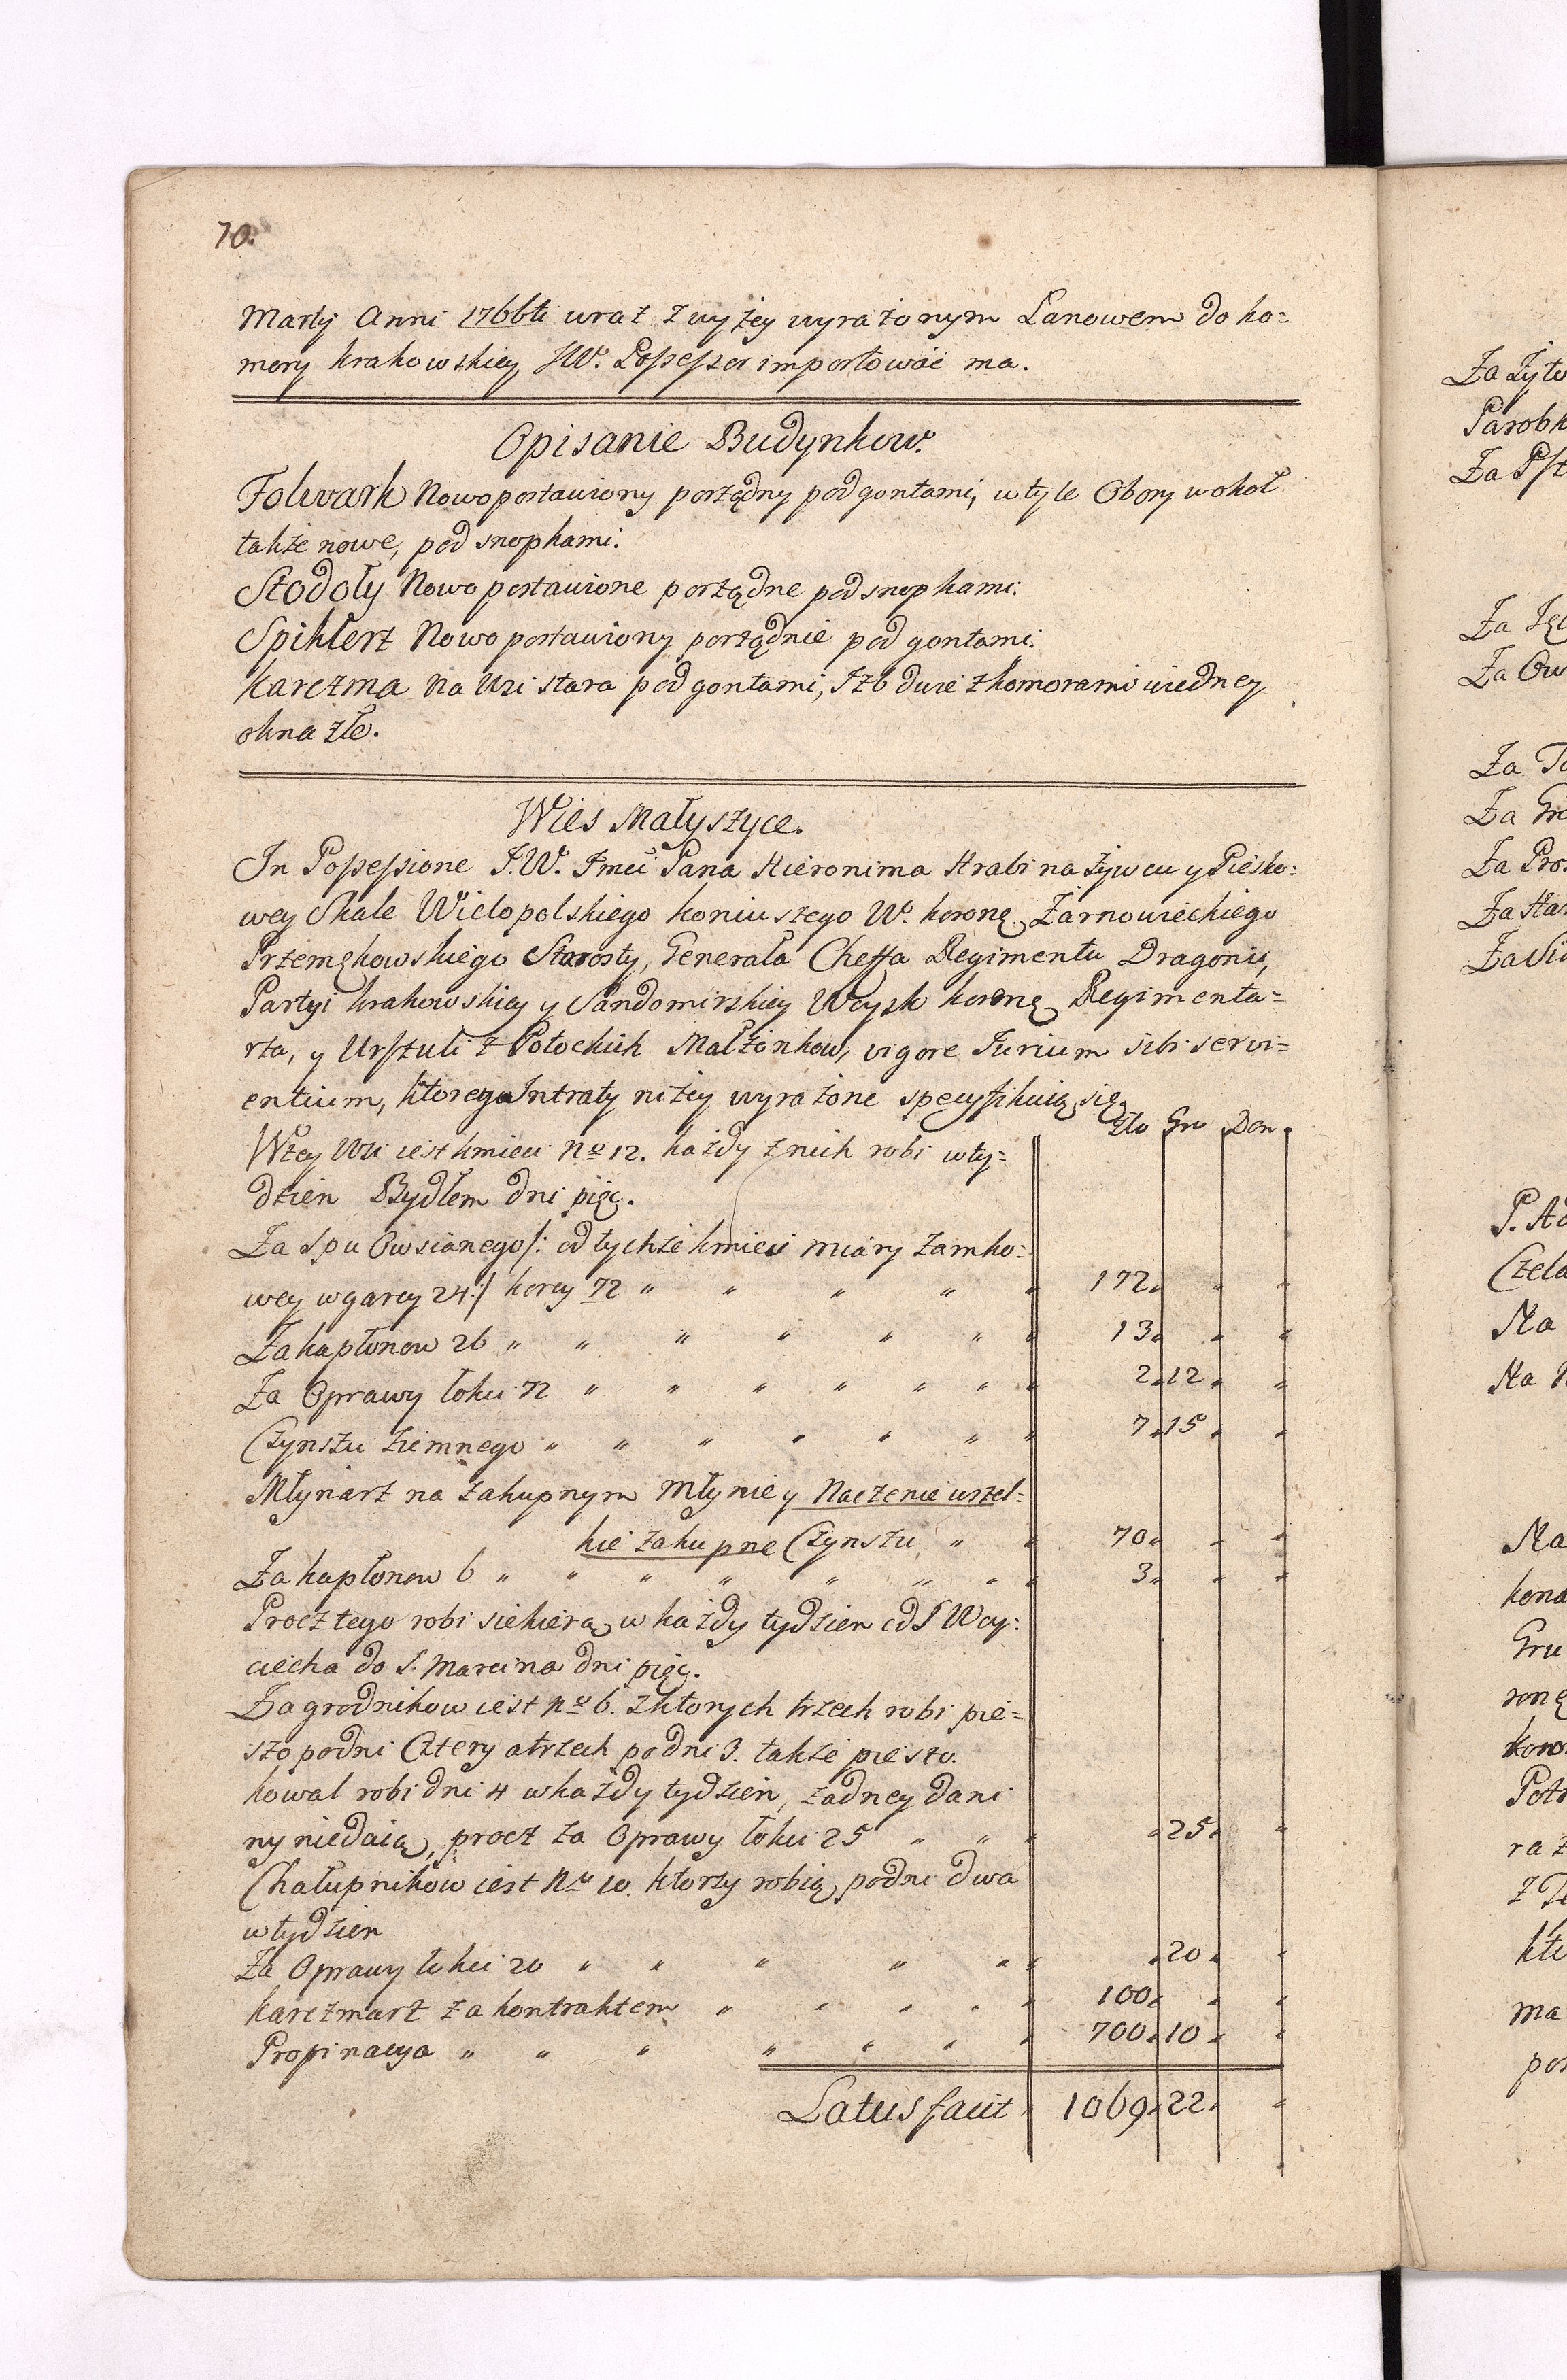 70.
Martij Anni 1766ti wraz z wyżey wyrażonym Łanowem do ko=
mory krakowskiey JW. Possessor importować ma.
Opisanie Budynkow.
Folwark Nowo postawiony porządny pod gontami, w tyle Obory wokoł
także nowe, pod snopkami.
Stodoły Nowo postawione porządne pod snopkami.
Spihlerz Nowo postawiony porządnie pod gontami.
Karczma na Wsi stara pod gontami, Izb dwie z komorami w iedney
okna złe.
Wies Małyszyce.
In Possessione J.W. Jmci Pana Hieronima Hrabi na Żywcu y Piesko=
wey Skale Wielopolskiego koniuszego W. koronę. Żarnowieckiego
Przemękowskiego Starosty, Generała Cheffa Regimentu Dragonii,
Partyi krakowskiey y Sandomirskiey Woysk koronę Regimenta=
rza, y Urszuli z Potockich Małżonkow, vigore Jurium sibi servi=
entium, ktorey Intraty niżey wyrażone specyfikuią się
Złо Gr Den
W tey Wsi iest kmieci No 12. każdy z nich robi w ty=
dzien Bydłem dni pięć.
Za Spu Owsianego /: od tychże kmieci miary zamko=
wey w garcy 24:/ korcy 72 " " " " " 172 " "
Za kapłonow 26 " " " " " " " 13 " "
Za Oprawy łokci 72 " " " " " " " 2 12 "
Czynszu ziemnego " " " " " " " 7 15 "
Młynarz na zakupnym Młynie y Naczenie wszel=
kie zakupne Czynszu " " 70 " "
Za kapłonow 6 " " " " " " " " 3 " "
Procz tego robi siekierą w każdy tydzien od S Woy:
ciecha do S. Marcina dni pięć.
Zagrodnikow iest No 6. z ktorych trzech robi pie=
szo po dni Cztery a trzech po dni 3. także pieszo.
kowal robi dni 4 w każdy tydzień, żadney dani
ny niedaią, procz za Oprawy łokci 25 " " " " 25 "
Chałupnikow iest No 10. ktorzy robią po dni dwa
w tydzien
Za Oprawy łokci 20 " " " " " " " 20 "
karczmarz za kontraktem " " " " " 100 " "
Propinacya " " " " " " " 700 10 "
Latus facit 1069 22 "
Za Żyto
Parobk
Za Psz
Za Ję
Za Ow
Za
Za Gro
Za Pro
Za
Za
P.
Czela
Na
Na
Na
kona
Gru
ronę
koro
Poto
ra
z
kto
ma
por